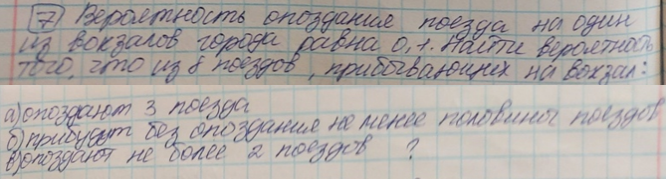 7 Вероятность опоздания поезда на один
из вокзалов города равна 0,1. Найти вероятность
того, что из 8 поездов, прибывающих на вокзал:
а) опоздают 3 поезда
б) прибудут без опоздания не менее половины поездов
в) опоздают не более 2 поездов ?